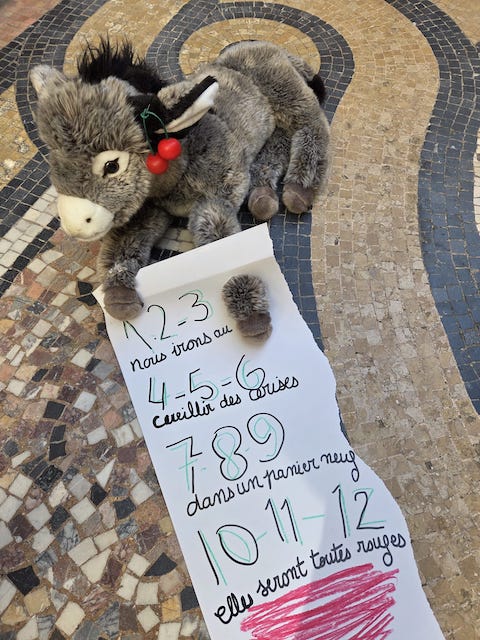 1-2-3
nous irons au
4-5-6
Cueillir des cerises
7-8-9
dans un panier neuf
10-11-12
elles seront toutes rouges